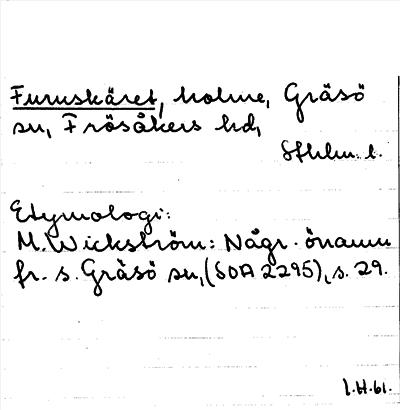 Furuskäret, holme, Gräsö
sn, Frösåkers hd,
Sthlm. l.
Etymologi:
M. Wickström: Någr. önamn
fr. s. Gräsö sn, (SOA 2295), s. 29.
I.H.61.